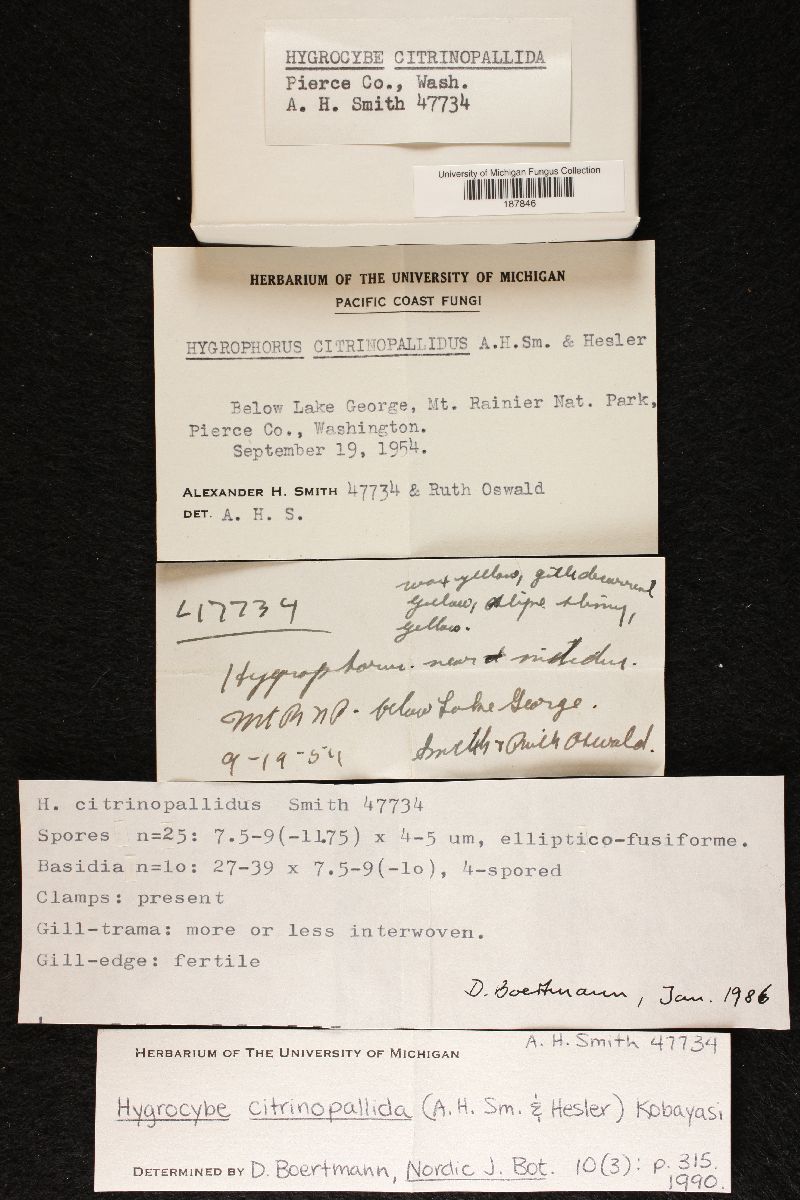 HYGROCYBE CITRINOPALLIDA
Pierce Co., Wash.
A. H. Smith 47734
University of Michigan Fungus Collection
187846
HERBARIUM OF THE UNIVERSITY OF MICHIGAN
PACIFIC COAST FUNGI
HYGROPHORUS CITRINOPALLIDUS A.H.Sm. & Hesler
Below Lake George, Mt. Rainier Nat. Park,
Pierce Co., Washington.
September 19, 1954.
ALEXANDER H. SMITH 47734 & Ruth Oswald
DET. A. H. S.
wax yellow, gills decurrent
yellow, stipe slimy,
yellow.
47734
Hygrophorus near nitidus.
Mt R N P. below Lake George.
9-19-54 Smith & Ruth Oswald.
H. citrinopallidus Smith 47734
Spores n=25: 7.5-9(-11.75) x 4-5 um, elliptico-fusiforme.
Basidia n=1o: 27-39 x 7.5-9(-1o), 4-spored
Clamps: present
Gill-trama: more or less interwoven.
Gill-edge: fertile
D. Boertmann, Jan. 1986
A. H. Smith 47734
HERBARIUM OF THE UNIVERSITY OF MICHIGAN
Hygrocybe citrinopallida (A.H. Sm. & Hesler) Kobayasi
DETERMINED BY D. Boertmann, Nordic J. Bot. 10(3): p. 315.
1990.